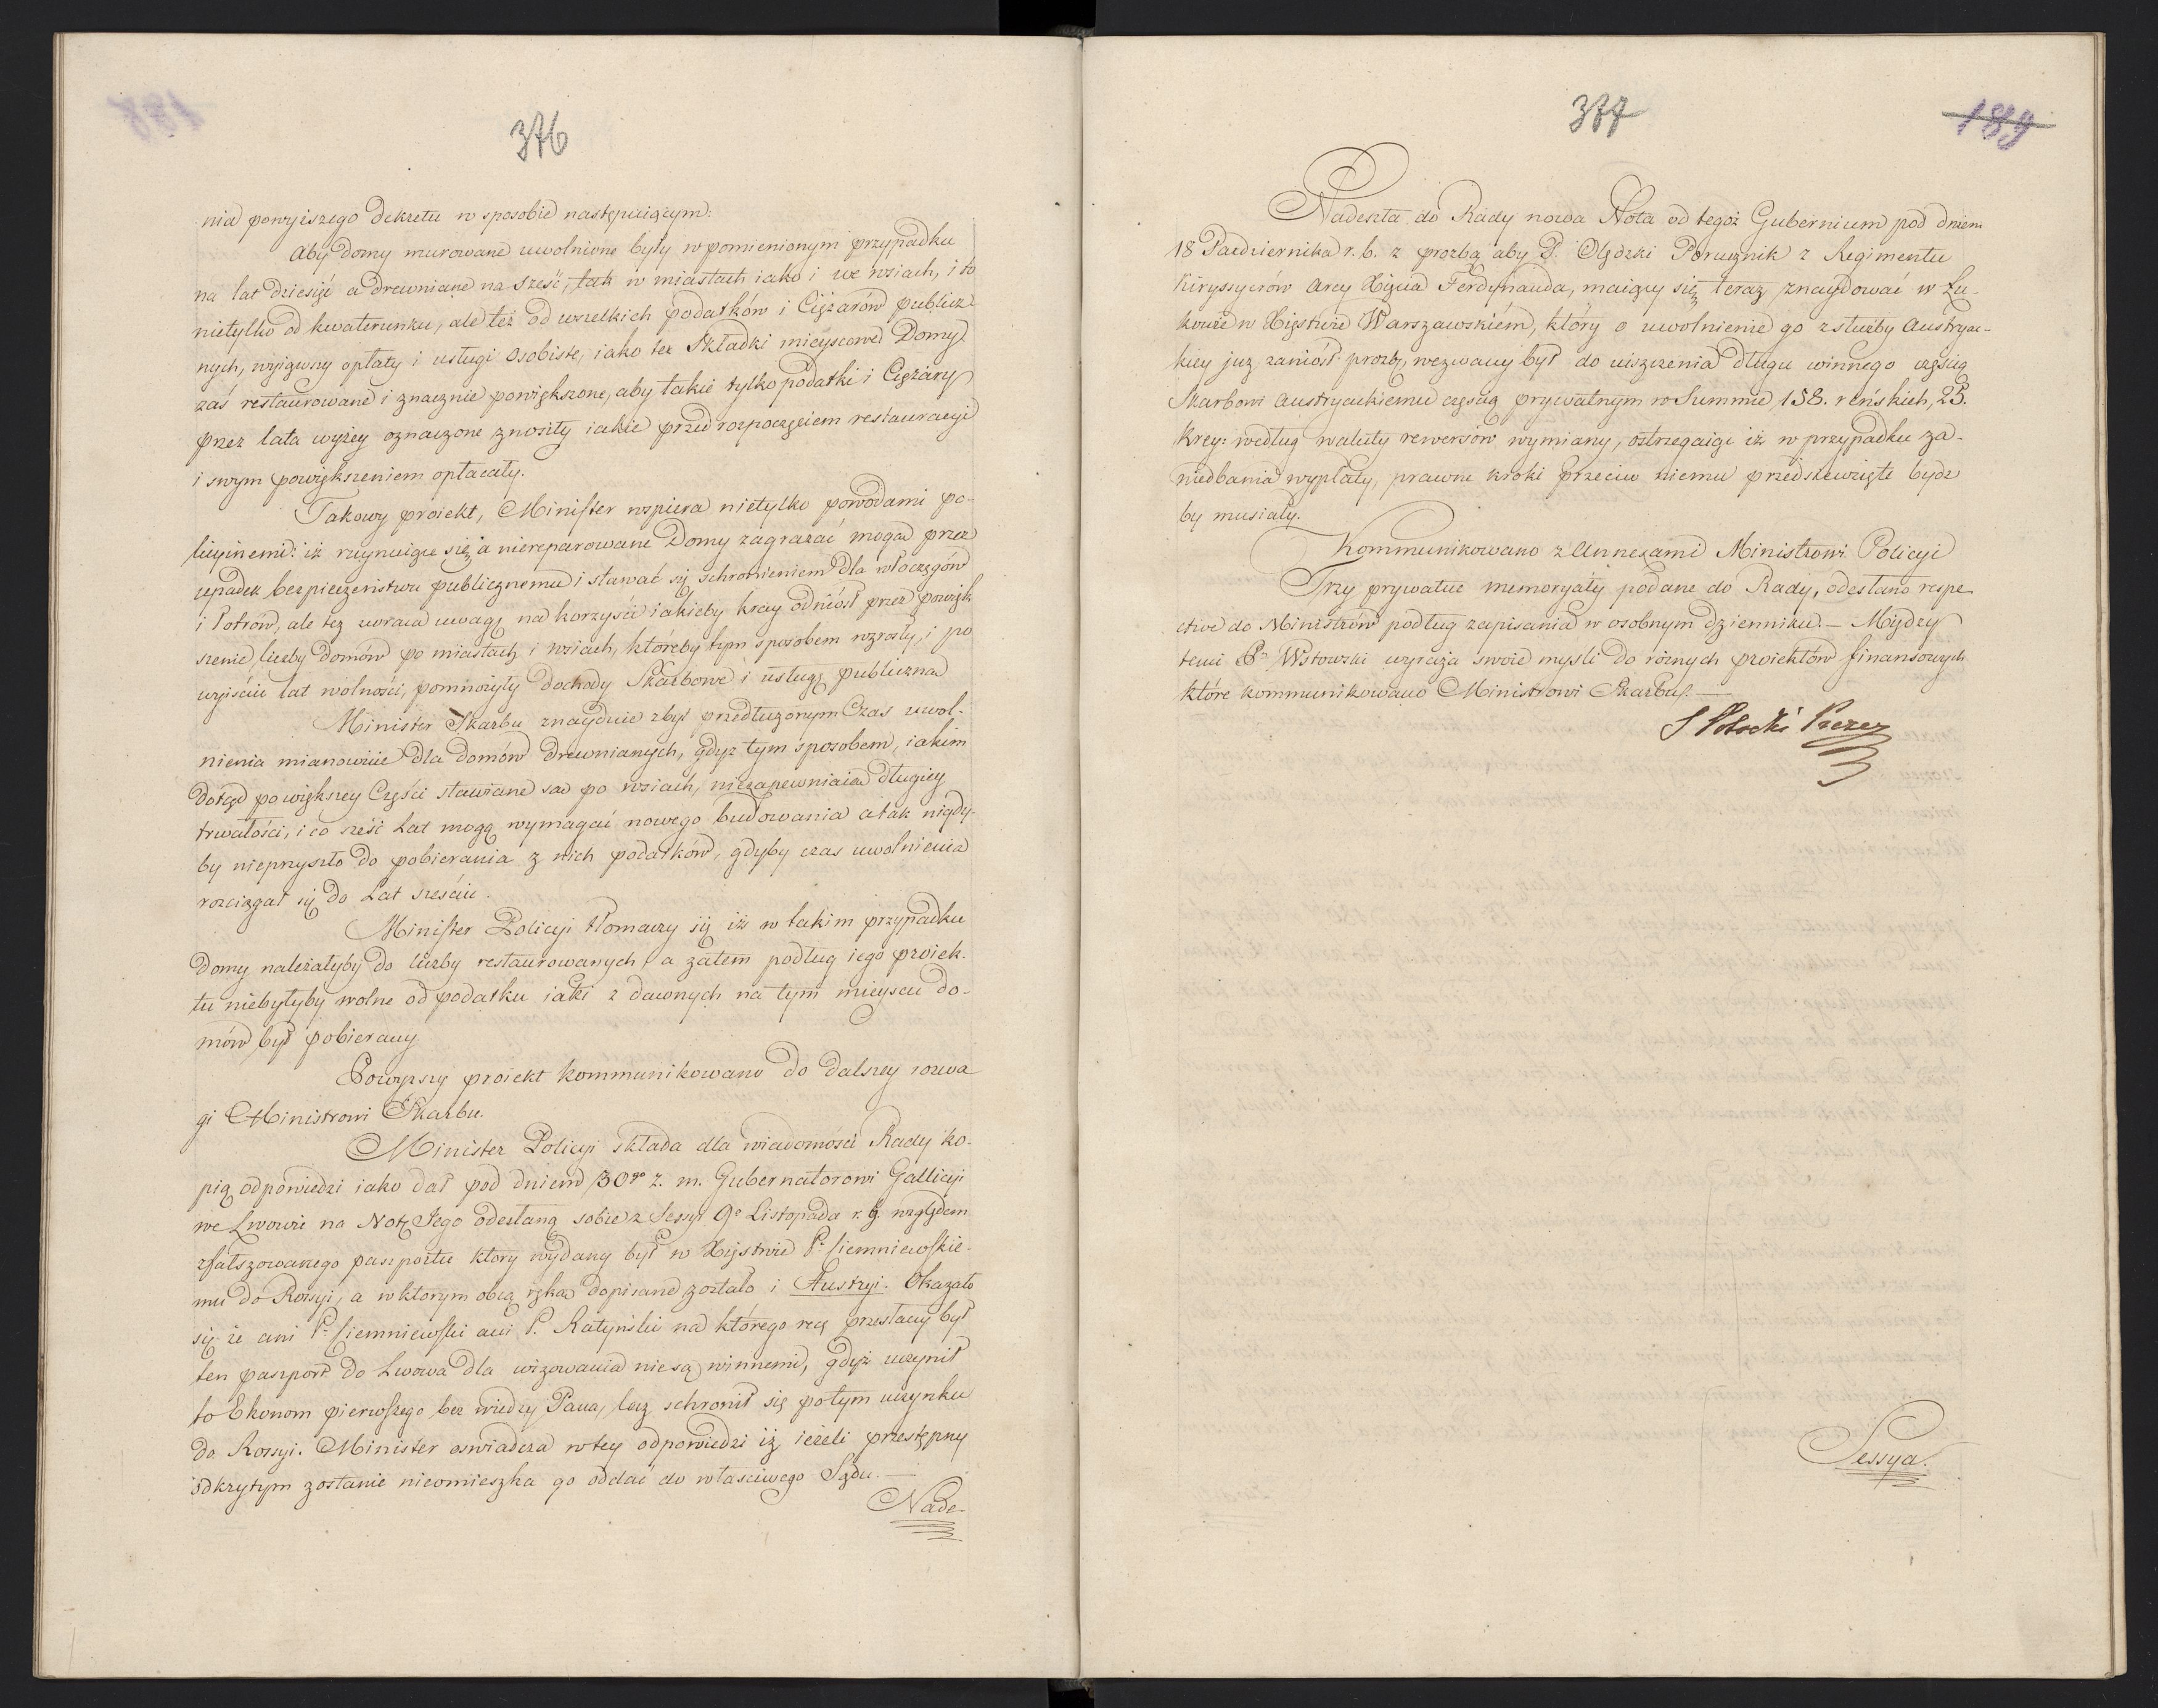 376
nia powyższego dekretu w sposobie następuiącym:
Aby domy murowane uwolnione były w pomienionym przypadku
na lat dziesięć a drewniane na sześć, tak w miastach iako i we wsiach, i to
nietylko od kwaterunku, ale też od wszelkich podatków i Ciężarów publicz-
nych, wyiąwszy opłaty i usługi osobiste, iako też Składki mieyscowe. Domy
zaś restaurowane i znacznie powiększone, aby takie tylko podatki i Ciężary
przez lata wyżey oznaczone znosiły iakie przed rozpoczęciem restauracyi
i swym powiększeniem opłacały.
Takowy proiekt, Minister wspiera nietylko powodami po-
licyinemi: iż ruynuiące się a niereparowane Domy zagrażać mogą przez
upadek bezpieczeństwu publicznemu i stawać się schronieniem dla włoczęgów
i łotrów, ale też zwraca uwagę na korzyści iakieby kray odniósł przez powięk
szenie liczby domów po miastach i wsiach, któreby tym sposobem wzrosły, i po
wyiściu lat wolności, pomnożyły dochody Skarbowe i usługę publiczną
Minister Skarbu znayduie zbyt przedłużonym Czas uwol-
nienia mianowicie dla domów drewnianych, gdyż tym sposobem, iakim
dotąd po większey Części stawiane są po wsiach, niezapewniaią długiey
trwałości, i co sześć Lat mogą wymagać nowego budowania a tak nigdy-
by nieprzyszło do pobierania z nich podatków, gdyby czas uwolnienia
rozciągał się do Lat sześciu.
Minister Policyi tłomaczy się iż w takim przypadku
domy należałyby do liczby restaurowanych, a zatem podług iego proiek-
tu niebyłyby wolne od podatku iaki z dawnych na tym mieyscu do-
mów był pobierany.
Powyższy proiekt kommunikowano do dalszey rozwa
gi Ministrowi Skarbu.
Minister Policyi składa dla wiadomości Rady ko-
pią odpowiedzi iako dał pod dniem 30go z. m. Gubernatorowi Gallicyi
we Lwowie na Notę Jego odesłaną sobie z Sessyi 9o Listopada r. b. względem
sfałszowanego paszportu ktory wydany był w Xięstwie P. Ciemniewskie-
mu do Rossyi, a w ktorym obcą ręką dopisane zostało i Austryi. Okazało
się że ani P. Ciemniewski ani P. Ratyński na którego ręcę przesłany był
ten paszport do Lwowa dla wizowania nie są winnemi, gdyż uczynił
to Ekonom pierwszego bez wiedzy Pana, lecz schronił się po tym uczynku
do Rossyi. Minister oswiadcza w tey odpowiedzi iż ieżeli przestępny
odkrytym zostanie nieomieszka go oddać do właściwego Sądu.—
Nade-
377
189
Nadeszła do Rady nowa Nota od tegoż Gubernium pod dniem
18 Pazdziernika r. b. z prozbą aby P. Olędzki Porucznik z Regimentu
Kiryssyerów Arcy Xięcia Ferdynanda, maiący się teraz znaydować w Łu-
kowie w Xięstwie Warszawskiém, który o uwolnienie go z służby Austryac-
kiey już zaniósł prozbę, wezwany był do uiszczenia długu winnego częścią
Skarbowi Austryackiemu częścią prywatnym w Summie 158. reńskich, 25.
Krey: według waluty rewersów wymiany, ostrzegaiąc iż w przypadku za-
niedbania wypłaty, prawne kroki przeciw niemu przedsięwzięte bydz
by musiały.
Kommunikowano z Annexami Ministrowi Policyi
Trzy prywatne memoryały podane do Rady, odesłano respe
ctive do Ministrów podług zapisania w osobnym dzienniku.— Między
temi P. Wstowski wyraża swoie mysli do różnych proiektów finansowych
które kommunikowano Ministrowi Skarbu.—
S Potocki Prezes
Sessya.